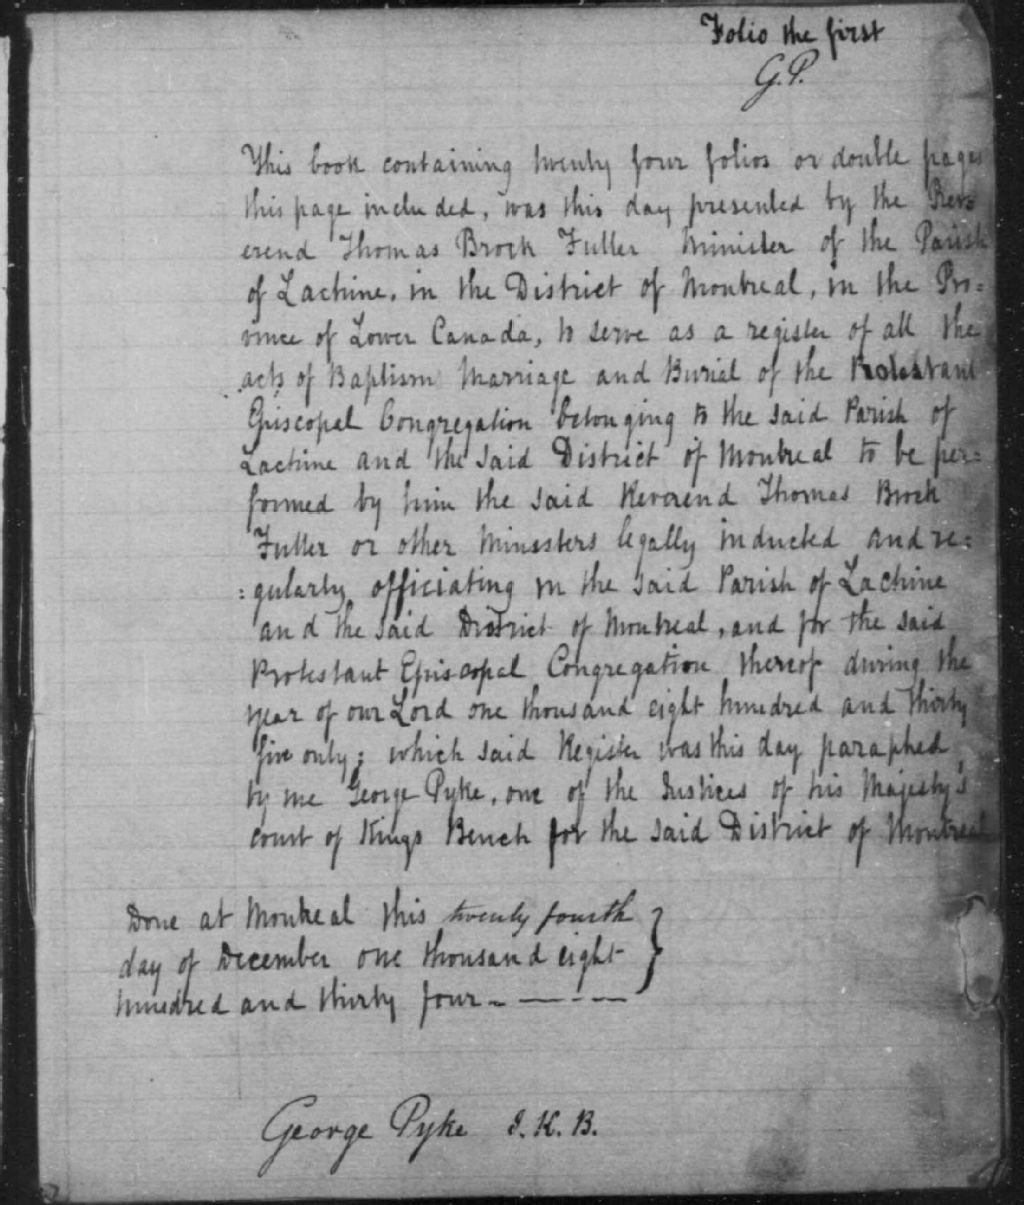 Folio the first
G.P.
This book containing twenty four folios or double pages
this page included, was this day presented by the Rev=
erend Thomas Brock Fuller Minister of the Parish
of Lachine, in the District of Montreal, in the Pro=
vince of Lower Canada, to serve as a register of all the
acts of Baptism Marriage and Burial of the Protestant
Episcopal Congregation belonging to the said Parish of
Lachine and the said District of Montreal to be per=
formed by him the said Reverend Thomas Brock
Fuller or other Ministers legally inducted and re=
=gularly officiating in the said Parish of Lachine
and the said District of Montreal, and for the said
Protestant Episcopal Congregation thereof during the
year of our Lord one thousand eight hundred and thirty
five only; which said Register was this day paraphed
by me George Pyke, one of the Justices of his Majesty's
court of Kings Bench for the said District of Montreal
Done at Montreal this twenty fourth
day of December one thousand eight
hundred and thirty four - - - -
George Pyke J.K.B.